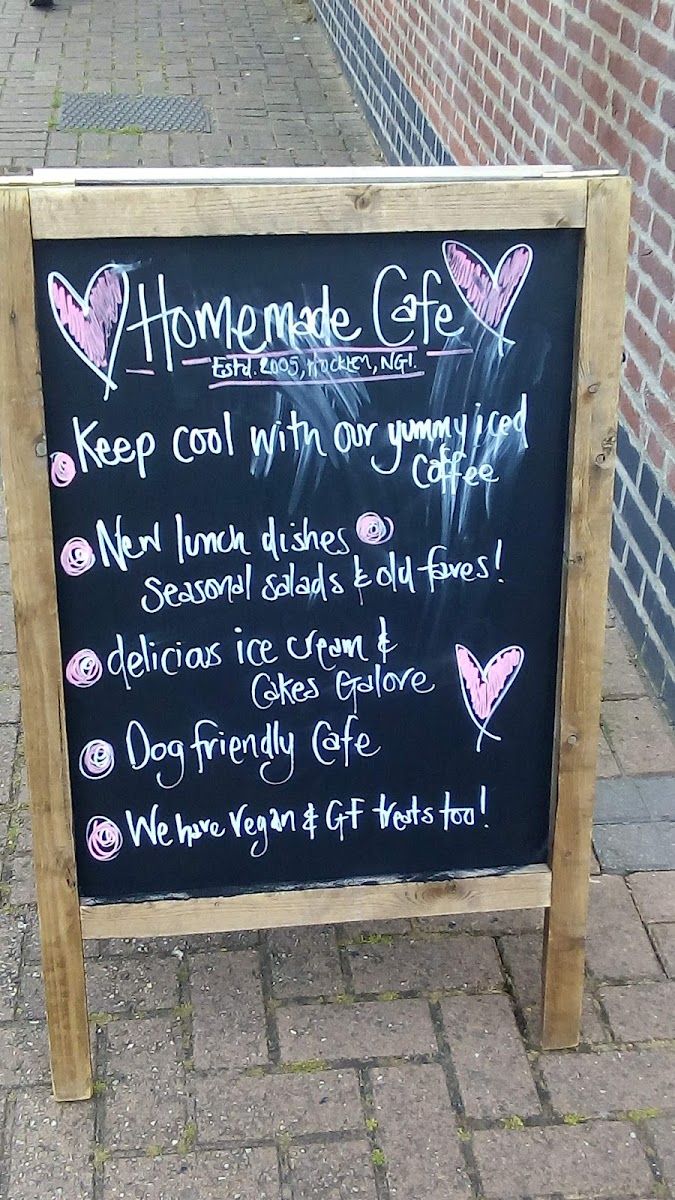 Homemade Cafe
Estd. 2005, Hockley, NG1.
Keep cool with our yummy iced
Coffee
New lunch dishes
Seasonal salads & old faves!
delicious ice cream &
Cakes Galore
Dog friendly Cafe
We have vegan & GF treats too!